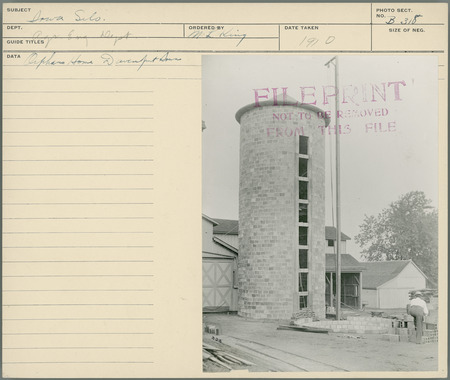 SUBJECT Iowa Silo.
PHOTO SECT.
NO. B-318
DEPT. Agr. Eng Dept
ORDERED BY
M L King
DATE TAKEN
1910
SIZE OF NEG.
GUIDE TITLES
DATA Orphans Home Davenport Iowa
FILE PRINT
NOT TO BE REMOVED
FROM THIS FILE